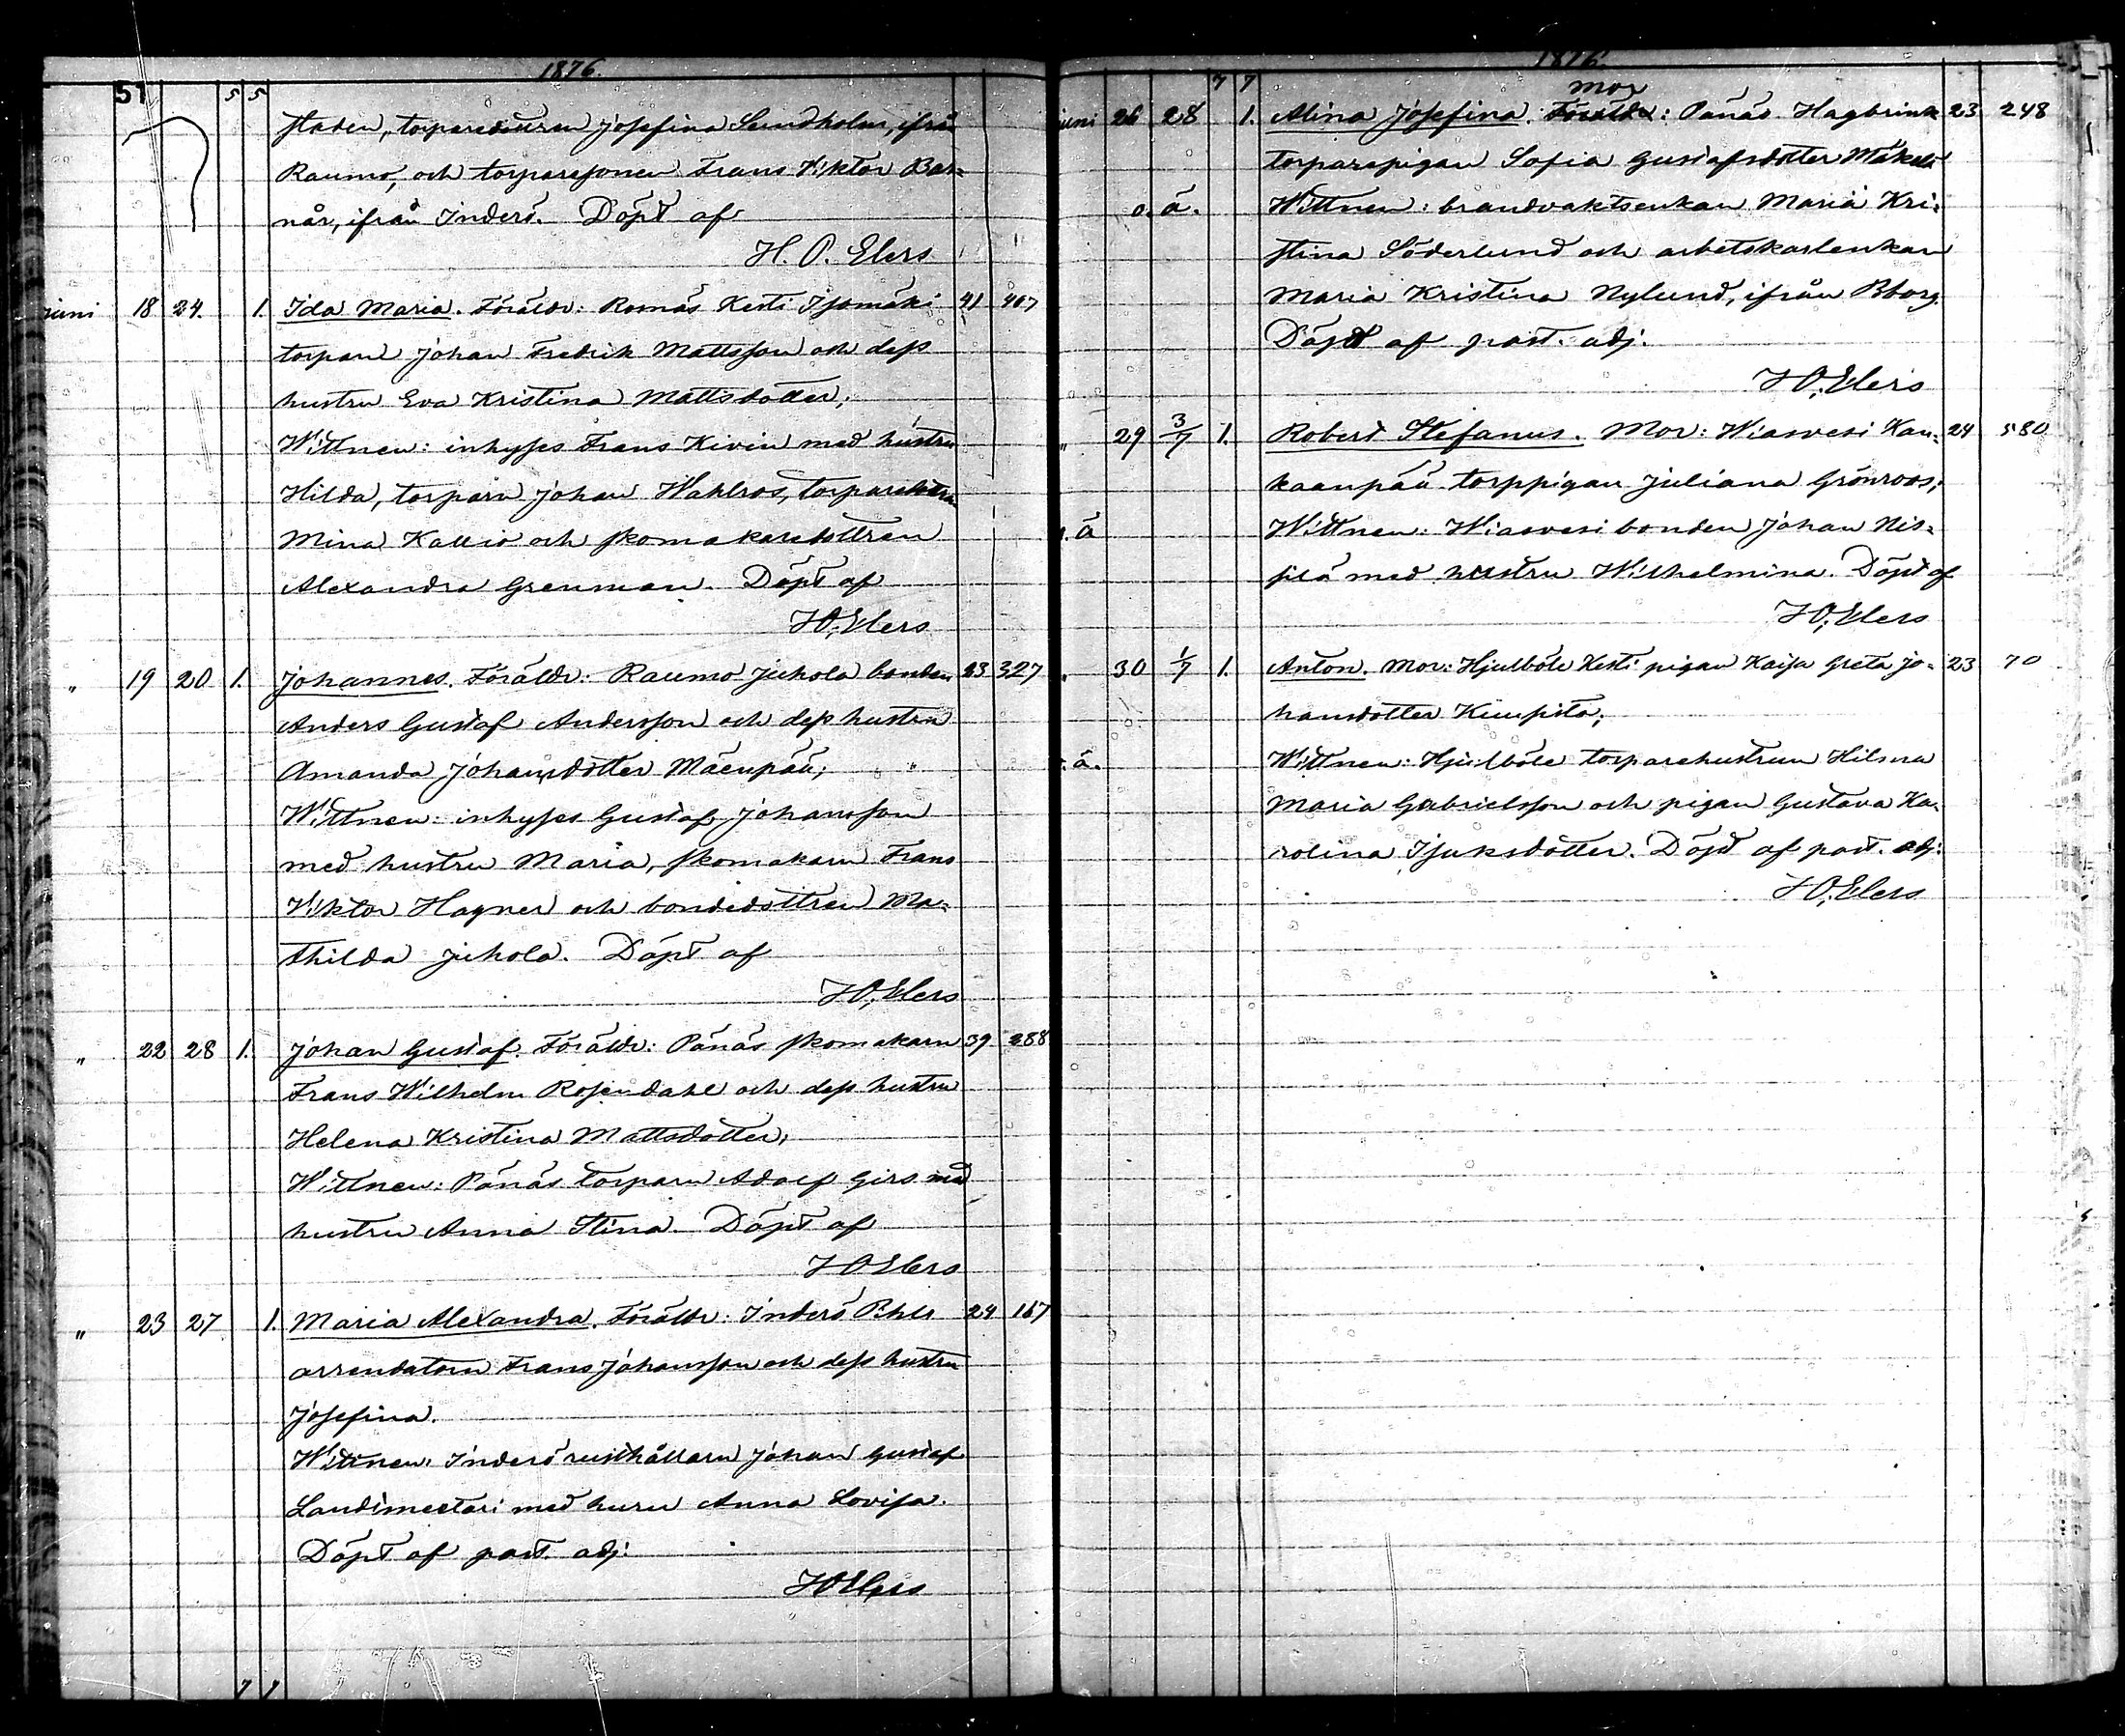 1876.
51 5 5
staden, torparedottren Josefina Sundholm, ifrån
Raumo, och torparesonen Frans Viktor Bar-
når, ifrån Inderö. Döpt af
H. O. Elers
juni 18 24. 1. Ida Maria. Föräldr: Romäs Kesti Isomäki 41 407
torparn Johan Fredrik Mattsson och dess
hustru Eva Kristina Mattsdotter;
Wittnen: inhyses Frans Kivin med hustru
Hilda, torparn Johan Wahlros, torparedottren
Mina Kallio och skomakaredottren
Alexandra Grenman. Döpt af
H.O. Elers
" 19 20 1. Johannes. Föräldr: Raumo Juhola bonden 23 327
Anders Gustaf Andersson och dess hustru
Amanda Johansdotter Mäenpää;
Wittnen: inhyses Gustaf Johansson
med hustru Maria, skomakarn Frans
Viktor Hagner och bondedottren Ma-
thilda Juhola. Döpt af
H.O. Elers
" 22 28 1. Johan Gustaf. Föräldr: Pänäs skomakarn 39 288
Frans Wilhelm Rosendahl och dess hustru
Helena Kristina Mattsdotter;
Wittnen: Pänäs torparn Adolf Girs med
hustru Anna Stina. Döpt af
H O Elers
" 23 27 1. Maria Alexandra. Föräldr: Inderö Pihls 24 167
arrendatorn Frans Johansson och dess hustru
Josefina.
Wittnen: Inderö rusthållarn Johan Gustaf
Landimestari med huru Anna Lovisa.
Döpt af past. adj:
H O Elers
1876.
7 7
juni 26 28 1. Alina Josefina. Föräldr: mor: Pänäs Hagbrink 23 248
torparepigan Sofia Gustafsdotter Mäkelä
o. ä. Wittnen: brandvaktsenkan Maria Kri-
stina Söderlund och arbetskarlenkan
Maria Kristina Nylund, ifrån Bborg.
Döpt af past. adj.
H.O. Elers
" 29 3/7 1. Robert Stefanus. Mor: Wiasvesi Kan- 24 580
kaanpää torppigan Juliana Grönroos;
o. ä Wittnen: Wiasvesi bonden Johan Nis-
silä med hustru Wilhelmina. Döpt af
H.O. Elers
" 30 1/7 1. Anton. Mor: Hjulböle Kesti pigan Kaisa Greta Jo- 23 70
hansdotter Kiinpito;
o. ä. Wittnen: Hjulböle torparehustrun Hilma
Maria Gabrielsson och pigan Gustava Ka-
rolina Isaksdotter. Döpt af past. adj:
H.O. Elers